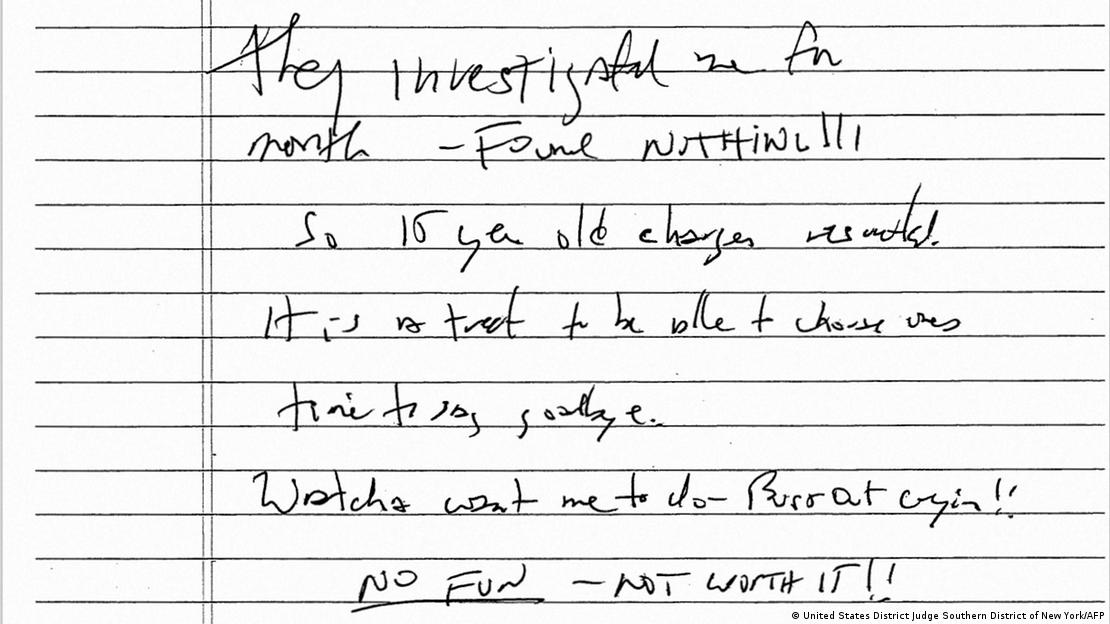 They investigated me for
month - Found NOTHING!!!
So 15 year old charges resulted.
It is a treat to be able to choose ones
time to say goodbye.
Watcha want me to do - Burst out cryin!!
NO FUN - NOT WORTH IT!!
© United States District Judge Southern District of New York/AFP